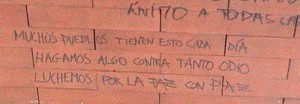 ÁNIMO A TODAS LA
MUCHOS PUEBLOS TIENEN ESTO CADA DÍA
HAGAMOS ALGO CONTRA TANTO ODIO
LUCHEMOS POR LA PAZ CON PAZ